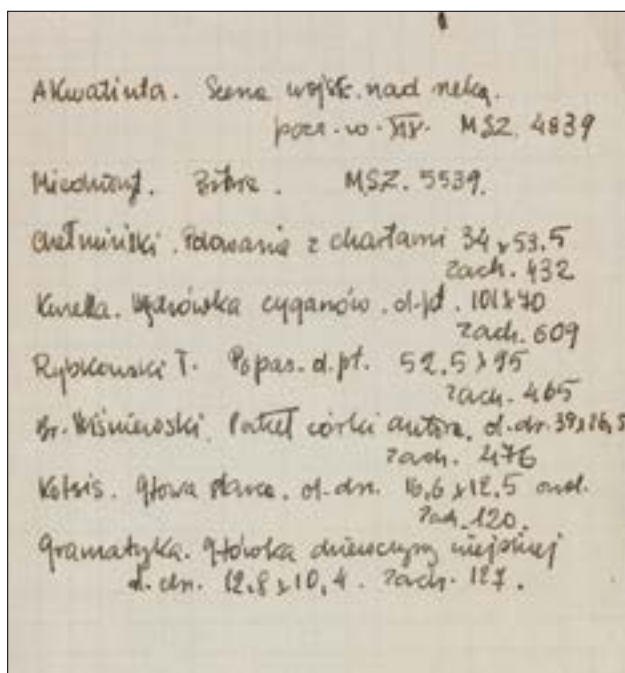 Akwatinta. Scena wojsk. nad rzeką.
pocz. w. XIX. MSZ. 4839
Miedzioryt. MSZ. 5539.
Chełmiński. Polowanie z chartami 34 x 53.5
Zach. 432
Kurella. Wędrówka cyganów. ol. pł. 101 x 70
Zach. 609
Rybkowski T. Popas. ol. pł. 52.5 x 95
Zach. 465
Br. Wiśniewski. Portret córki autora. ol. dr. 39 x 26,5
Zach. 476
Kotsis. Głowa starca. ol. dr. 16,6 x 12.5
Zach. 120.
Gramatyka. Główka dziewczyny wiejskiej
ol. dr. 12,8 x 10,4. Zach. 127.